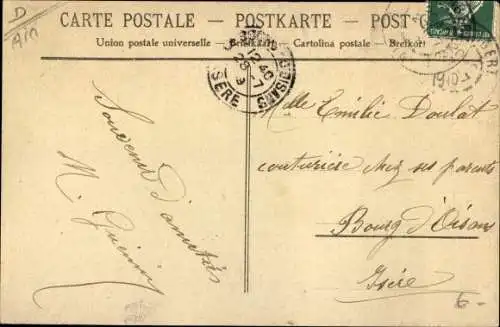 D
Ain
CARTE POSTALE - POSTKARTE - POST
Union postale universelle - Briefkarte - Cartolina postale - Breikort
12 40
28 - 7
ISÈRE
1910
Souvenir d'amitiés
M.
Melle Emilie Doulat
couturière chez ses parents
Bourg d'Oisans
Isère
6-